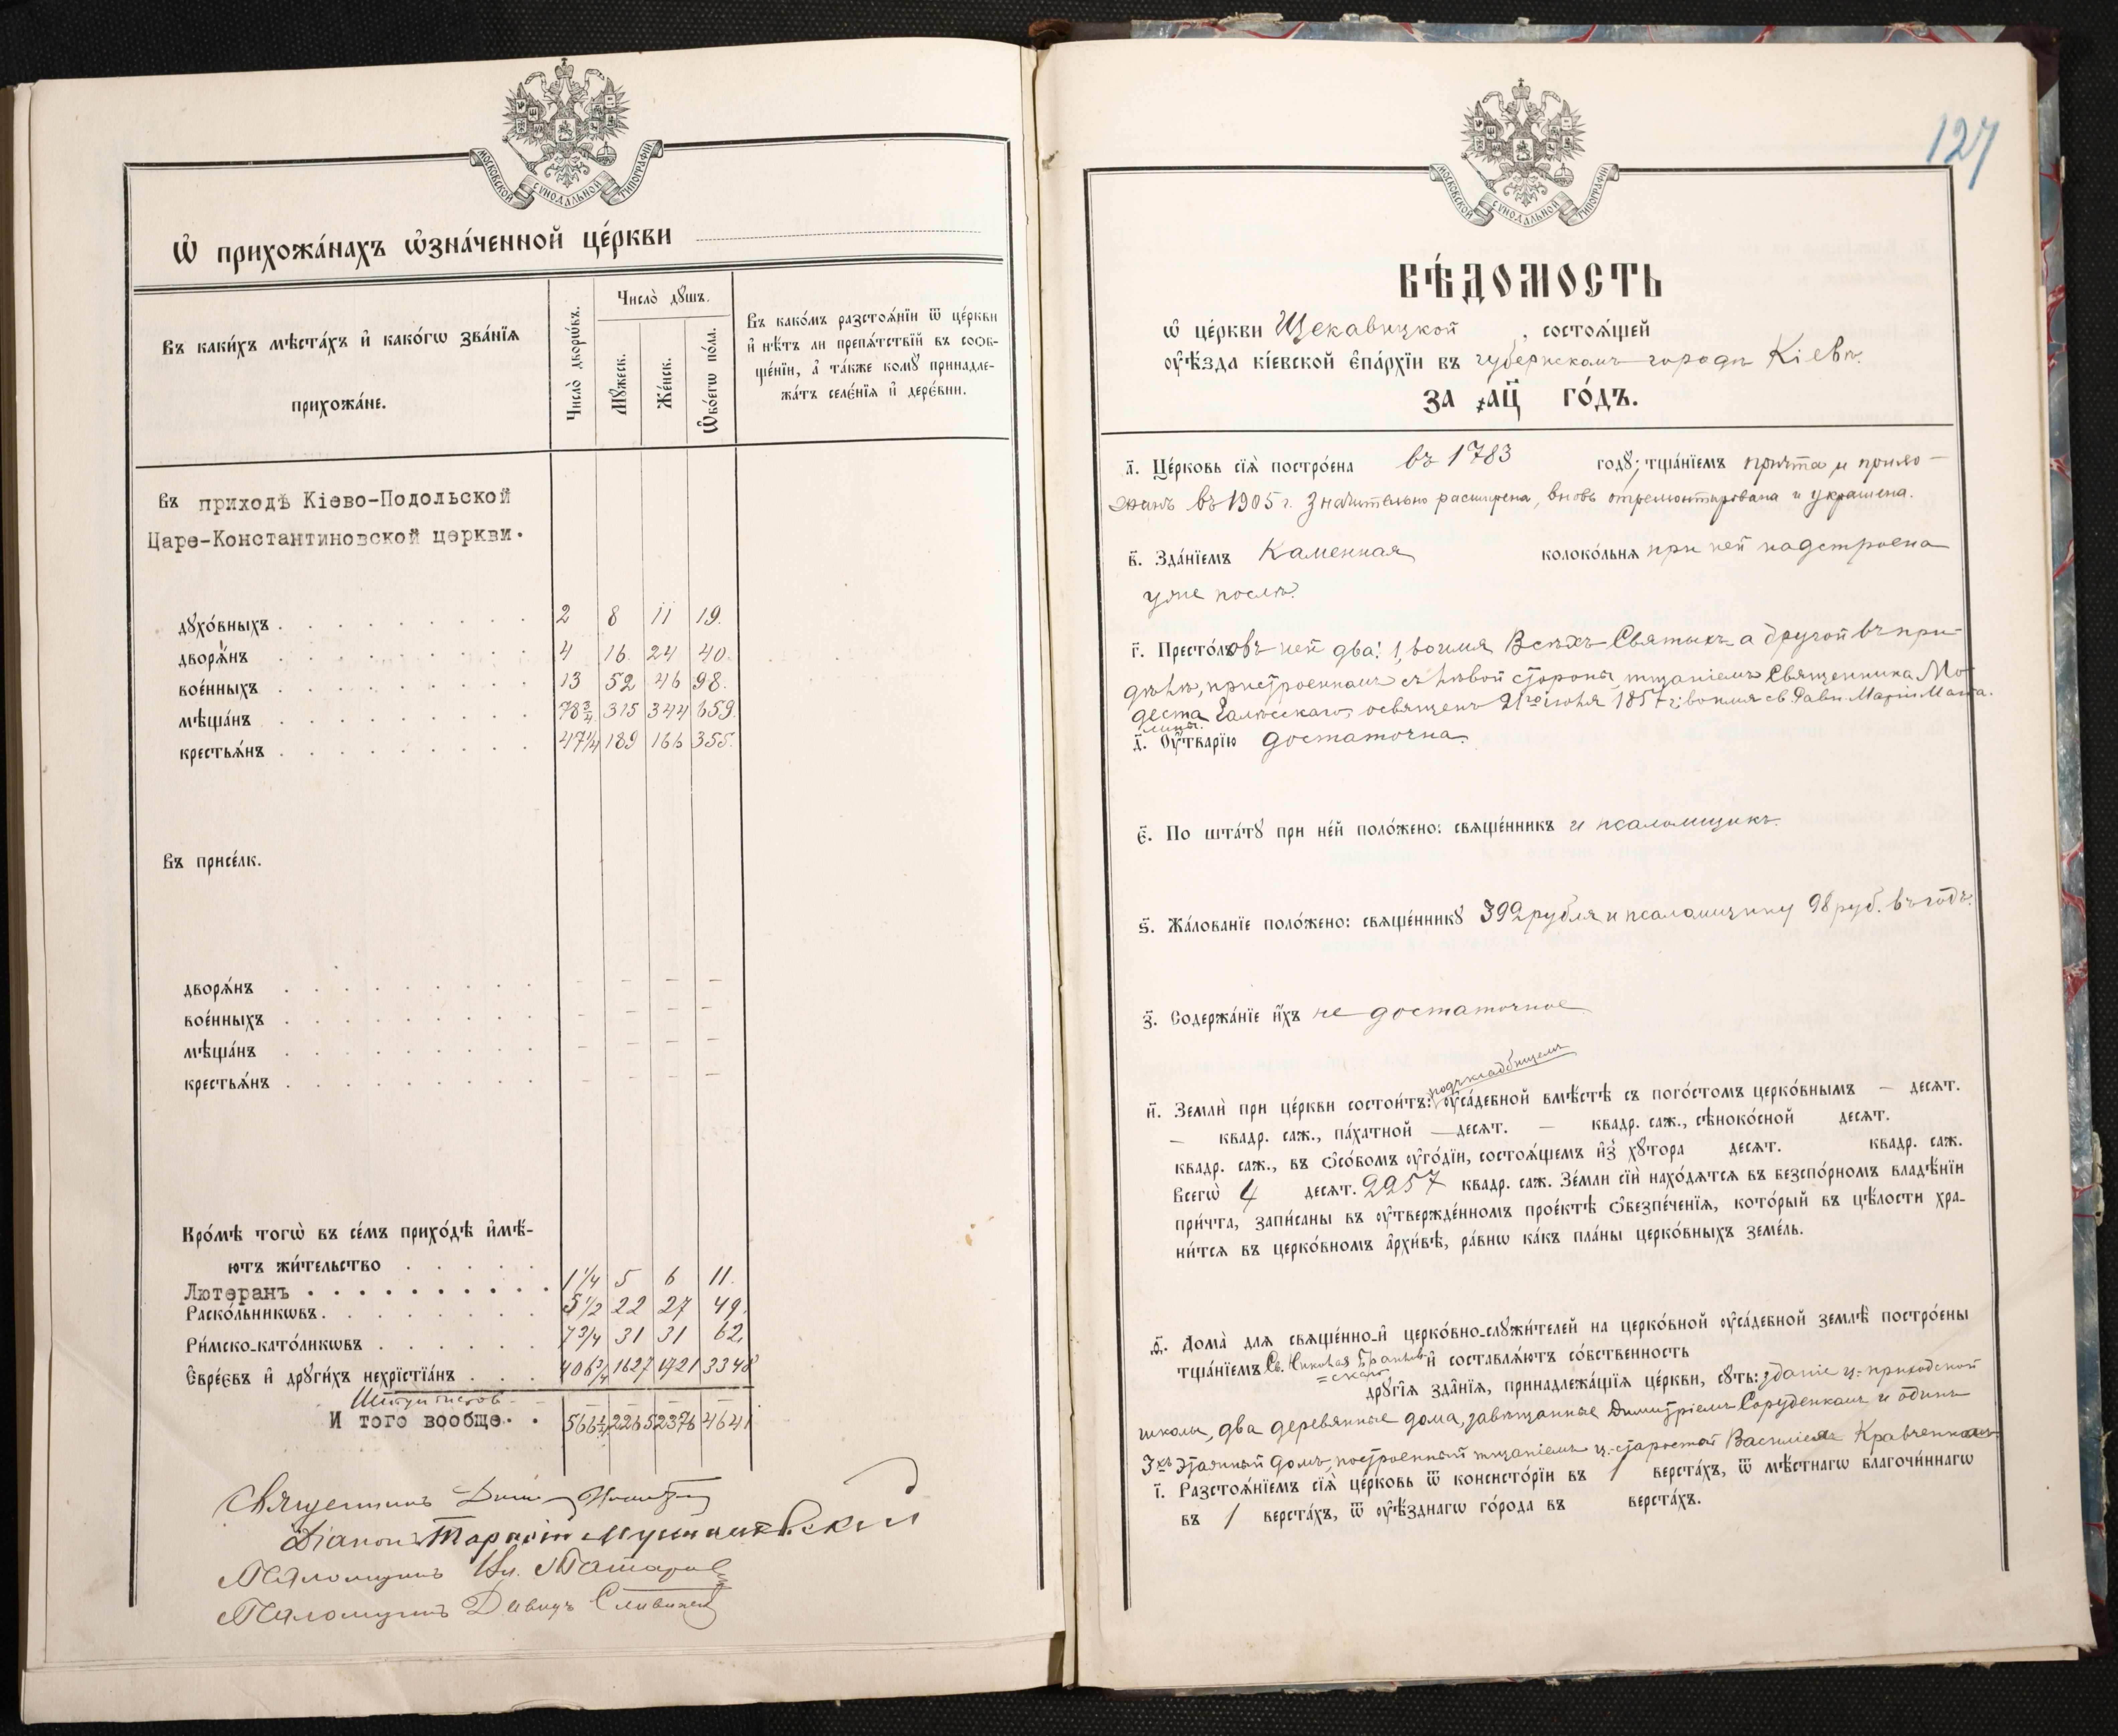 МОСКОВСКОЙ СѴНОДАЛЬНОЙ ТИПОГРАФІИ
Ѡ прихожа́нахъ ѡзна́ченной це́ркви
Въ каки́хъ мѣста́хъ и҆ како́гѡ зва́нїѧ
прихожа́не.
Число̀ дворѡ́въ.
Число̀ дꙋ́шъ.
Мꙋ́жеск.
Же́нск.
Ѻ҆бо́егѡ по́ла.
Въ како́мъ разстоѧ́нїи ѿ це́ркви
и҆ нѣ́тъ ли препѧ́тствїй въ соѻб-
ще́нїи, а҆ та́кже комꙋ̀ принадле-
жа́тъ селе́нїѧ и҆ дере́вни.
Въ приходѣ Кіево-Подольской
Царе-Константиновской церкви.
дꙋхо́вныхъ . 2 8 11 19.
дворѧ́нъ . 4 16. 24 40.
вое́нныхъ . 13 52 46 98.
мѣща́нъ . 78¾ 315 344 659.
крестьѧ́нъ . 47¼ 189 166 355.
Въ присе́лк.
дворѧ́нъ . – – – –
вое́нныхъ . – – – –
мѣща́нъ . – – – –
крестьѧ́нъ . – – – –
Кро́мѣ тогѡ̀ въ се́мъ прихо́дѣ и҆мѣ́-
ютъ жи́тельство
Лютеранъ . 1¼ 5 6 11.
Раско́льникѡвъ . 5½ 22 27 49.
Ри́мско-като́ликѡвъ . 7¾ 31 31 62.
Є҆вре́євъ и҆ дрꙋги́хъ нехрїстїа́нъ . 406¾ 1627 1721 3348
Штундистовъ – – – –
И того вообще. . 566¼ 2265 2376 4641
Священникъ
Діаконъ Тарасій
Псаломщикъ Вл.
Псаломщикъ Давидъ
127
МОСКОВСКОЙ СѴНОДАЛЬНОЙ ТИПОГРАФІИ
ВѢ́ДОМОСТЬ
Ѡ҆ це́ркви Щекавицкой , состоѧ́щей
ᲂу҆ѣ́зда кі́евской є҆па́рхїи въ губернскомъ городѣ Кіевѣ.
ЗА ҂АЦ҃ ГО́ДЪ.
а҃. Це́рковь сїѧ̀ постро́ена въ 1783 годꙋ̀; тща́нїемъ причта и прихо-
жанъ въ 1905 г. значительно расширена, вновь отремонтирована и украшена.
в҃. Зда́нїемъ Каменная колоко́льнѧ при ней надстроена
уже послѣ.
г҃. Престо́лѡвъ ней два: 1, во имя Всѣхъ Святыхъ а другой въ при-
дѣлѣ, пристроенномъ съ лѣвой стороны, тщаніемъ Священника Мо-
деста освященъ 21го іюня 1857 г. во имя св. Равн. Маріи Магда-
лины.
д҃. Оу҆́тварїю достаточна.
є҃. По шта́тꙋ при не́й поло́жено: свѧще́нникъ и псаломщикъ.
ѕ҃. Жа́лованїе поло́жено: свѧще́нникꙋ 392 рубля и псаломщику 98 руб. въ годъ.
з҃. Содержа́нїе и҆́хъ не достаточное
и҃. Землѝ при це́ркви состои́тъ: подъ кладбищемъ ᲂу҆са́дебной вмѣ́стѣ съ пого́стомъ церко́внымъ – десѧт.
– квадр. саж., па́хатной – десѧт. – квадр. саж., сѣноко́сной десѧт.
квадр. саж., въ ѻ҆со́бомъ ᲂу҆го́дїи, состоѧ́щемъ и҆з̾ хꙋ́тора десѧт. квадр. саж.
Всегѡ̀ 4 десѧт. 2257 квадр. саж. Зе́мли сїѝ нахо́дѧтсѧ въ безспо́рномъ владѣ́нїи
при́чта, запи́саны въ ᲂу҆твержде́нномъ прое́ктѣ ѻ҆безпе́ченїѧ, кото́рый въ цѣ́лости хра-
ни́тсѧ въ церко́вномъ а҆рхи́вѣ, ра́внѡ ка́къ пла́ны церко́вныхъ земе́ль.
ѳ҃. Дома̀ длѧ свѧще́нно-и҆ церко́вно-слꙋжи́телей на церко́вной ᲂу҆са́дебной землѣ̀ постро́ены
тща́нїемъ Св. Николая и҆ составлѧ́ютъ со́бственность
дрꙋгі́ѧ зда̑нїѧ, принадлежа́щїѧ це́ркви, сꙋ́ть: зданіе ц.-приходской
школы, два деревянные дома, завѣщанные Димитріемъ и одинъ
3хъ этажный домъ, построенный тщаніемъ ц.-старосты Василія Кравченко.
і҃. Разстоѧ́нїемъ сїѧ̀ це́рковь ѿ консисто́рїи въ 1 верста́хъ, ѿ мѣ́стнагѡ благочи́ннагѡ
въ 1 верста́хъ, ѿ ᲂу҆ѣ́зднагѡ го́рода въ верста́хъ.